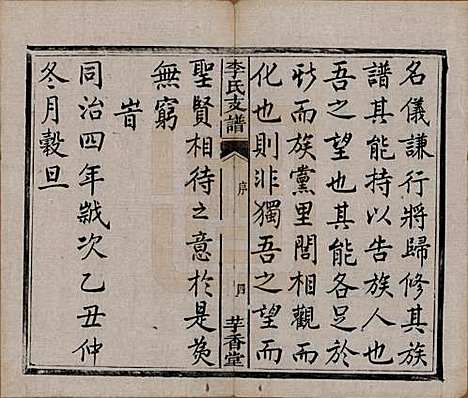 名儀謙行將歸修其族
譜其能持以告族人也
吾之望也其能各足於
斯而族黨里閭相觀而
化也則非獨吾之望而
李氏支譜
序
四
莩香堂
聖賢相待之意於是英
無窮
旹
同治四年歲次乙丑仲
冬月穀旦